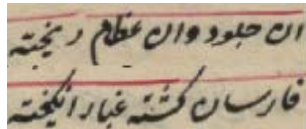 ان جلود وان عظام ریخته
فارسان کشته غبار انکیخته